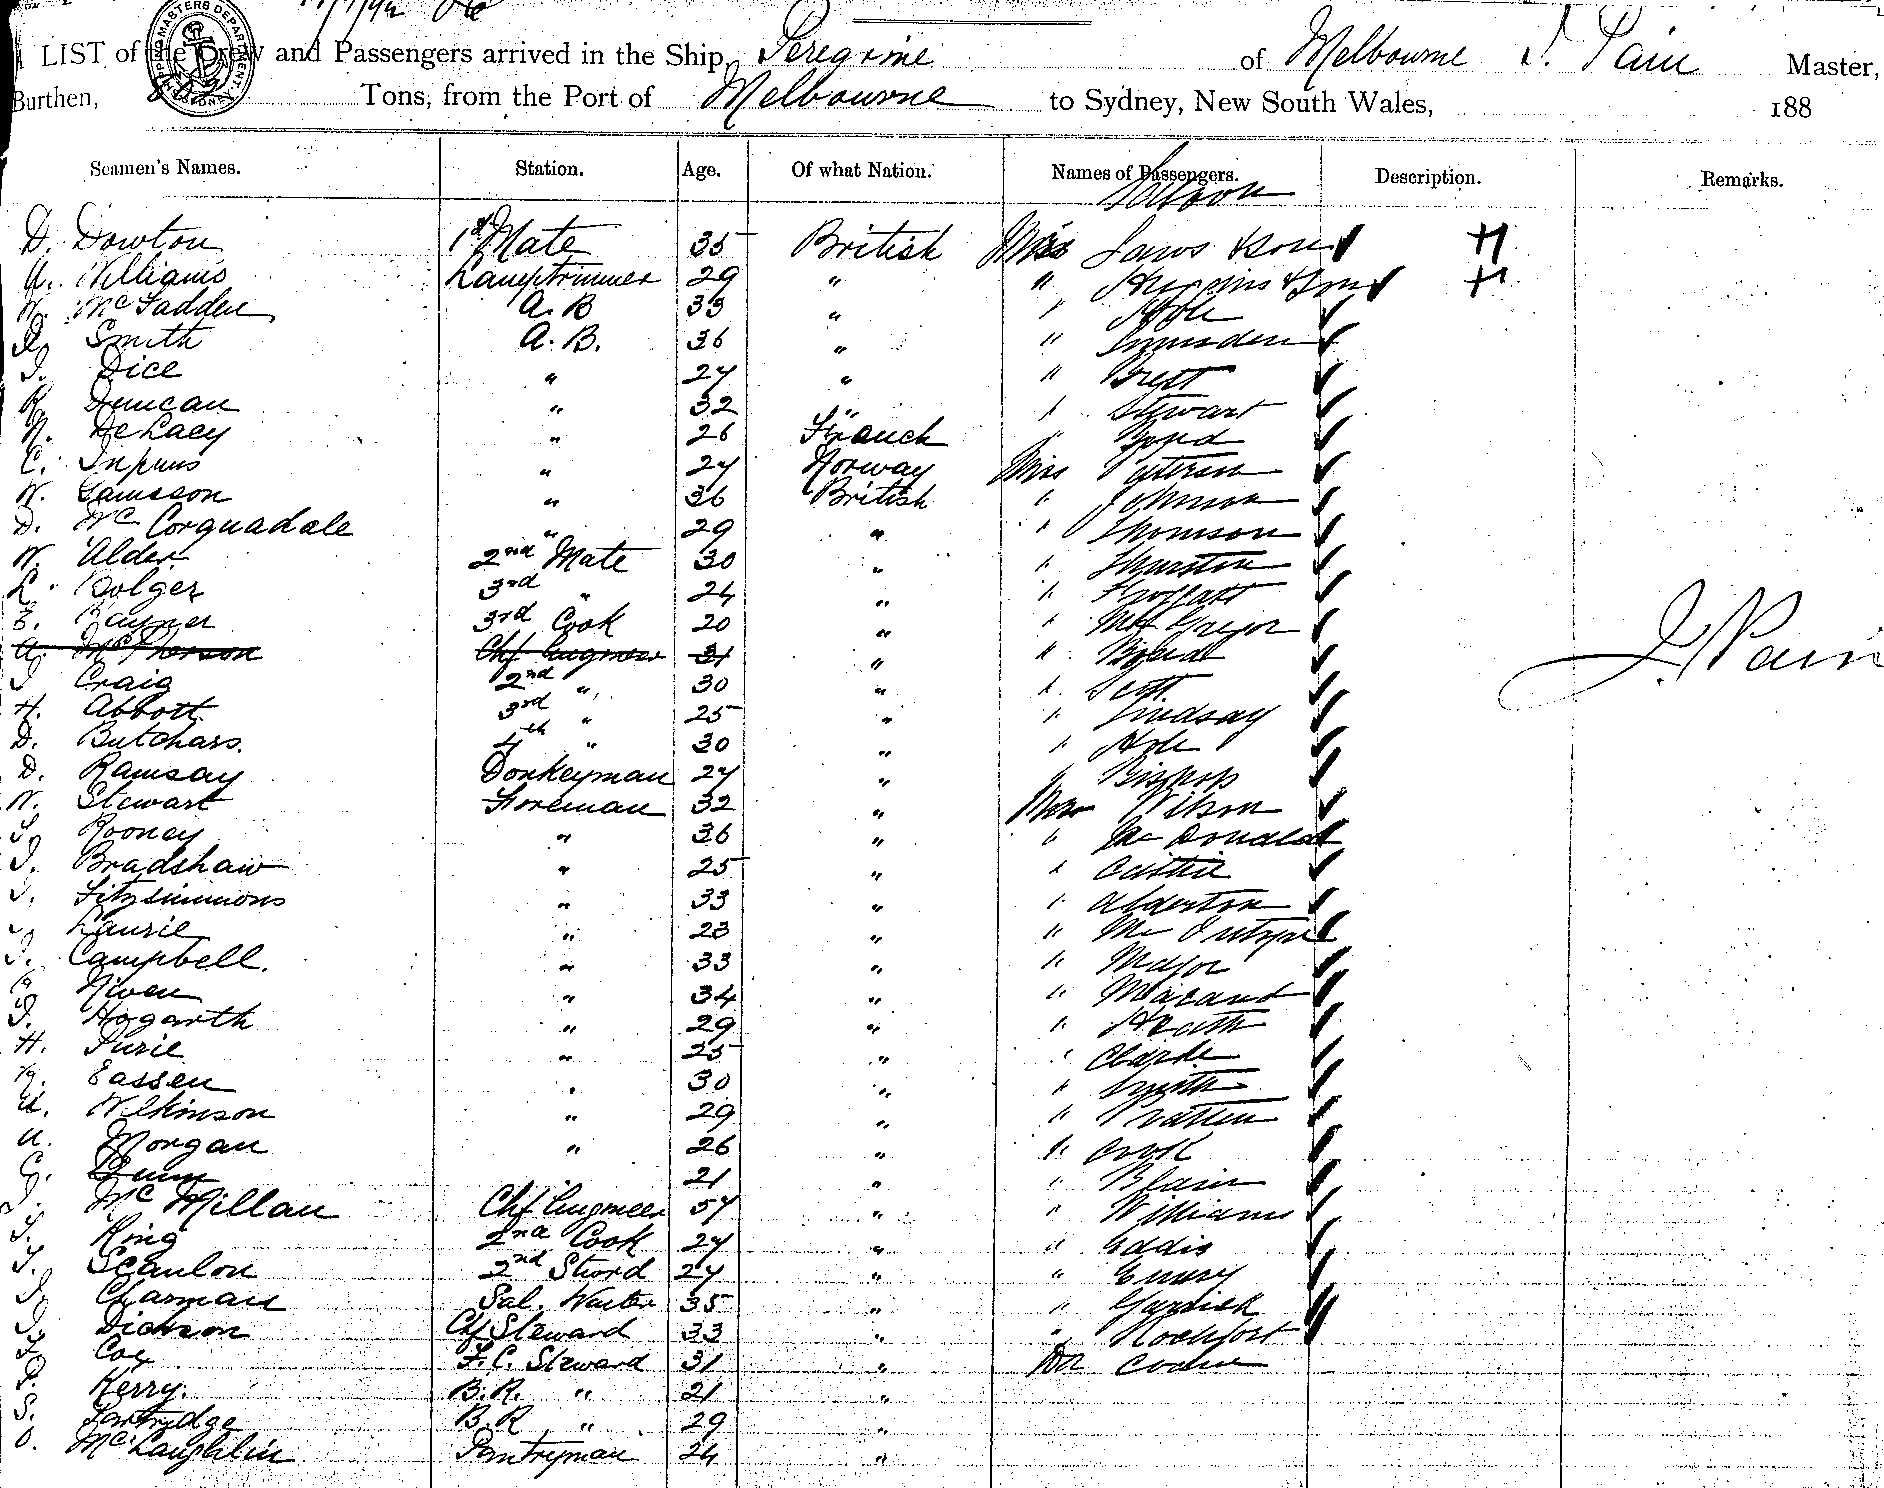 LIST of the Crew and Passengers arrived in the Ship, Peregrine of Melbourne J. Pain Master,
Burthen, Tons, from the Port of Melbourne to Sydney, New South Wales, 188
Seamen's Names. Station. Age. Of what Nation. Names of Passengers. Description. Remarks.
Saloon
D. Dowton 1st Mate 35 British Mrs & son
A. Williams Lamptrimmer 29 " " Higgins & son
W. McFadden A. B 33 " "
Smith A. B. 36 " " Lumsden
J. Dice " 27 " " Brett
R. Duncan " 32 " " Stewart
N. De Lacy " 26 Franch " Bond
C. " 27 Norway Miss Peterson
W. Samsson " 36 British " Johnson
D. McCorquadale " 29 " " Thomson
W. Alder 2nd Mate 30 " " Thurston
L. Bolger 3rd " 24 " "
E. Rayner 3rd Cook 20 " " McGregor
A. McPherson Chf Engineer 31 " "
J Craig 2nd " 30 " " Scott
H. Abbott 3rd " 25 " " Lindsay
D. Butchars. 4th " 30 " " Hole
D. Ramsay Donkeyman 27 " " Bishop
W. Stewart Foreman 32 " Mrs Wilson
Rooney " 36 " " McDonald
J. Bradshaw " 25 " "
J. Fitzsimmons " 33 " " Alderton
Laurie " 23 " " McIntyre
J. Campbell. " 33 " " Major
Niven " 34 " "
J. Hogarth " 29 " " Heath
H. Purie " 25 " " Clarke
Eassen " 30 " " Smith
Wilkinson " 29 " " Pratten
A. Morgan " 26 " " Cook
G. Dunn 21 " " Blain
J. McMillan Chf Engineer 57 " " Williams
King 2nd Cook 27 " " Eddis
T. Scanlon 2nd Stword 27 " " Emery
J. Charman Sal. Waiter 35 " "
Dickson Chf Steward 33 " " Rochfort
Coy F.C. Steward 31 " Dr
P. Kerry. B.R. " 21 "
S. Partridge B.R " 29 "
O. McLaughlin Pantryman 24 "
J. Pain